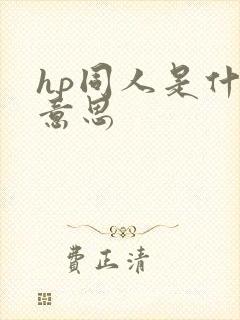 hp同人是什
意思
費正清